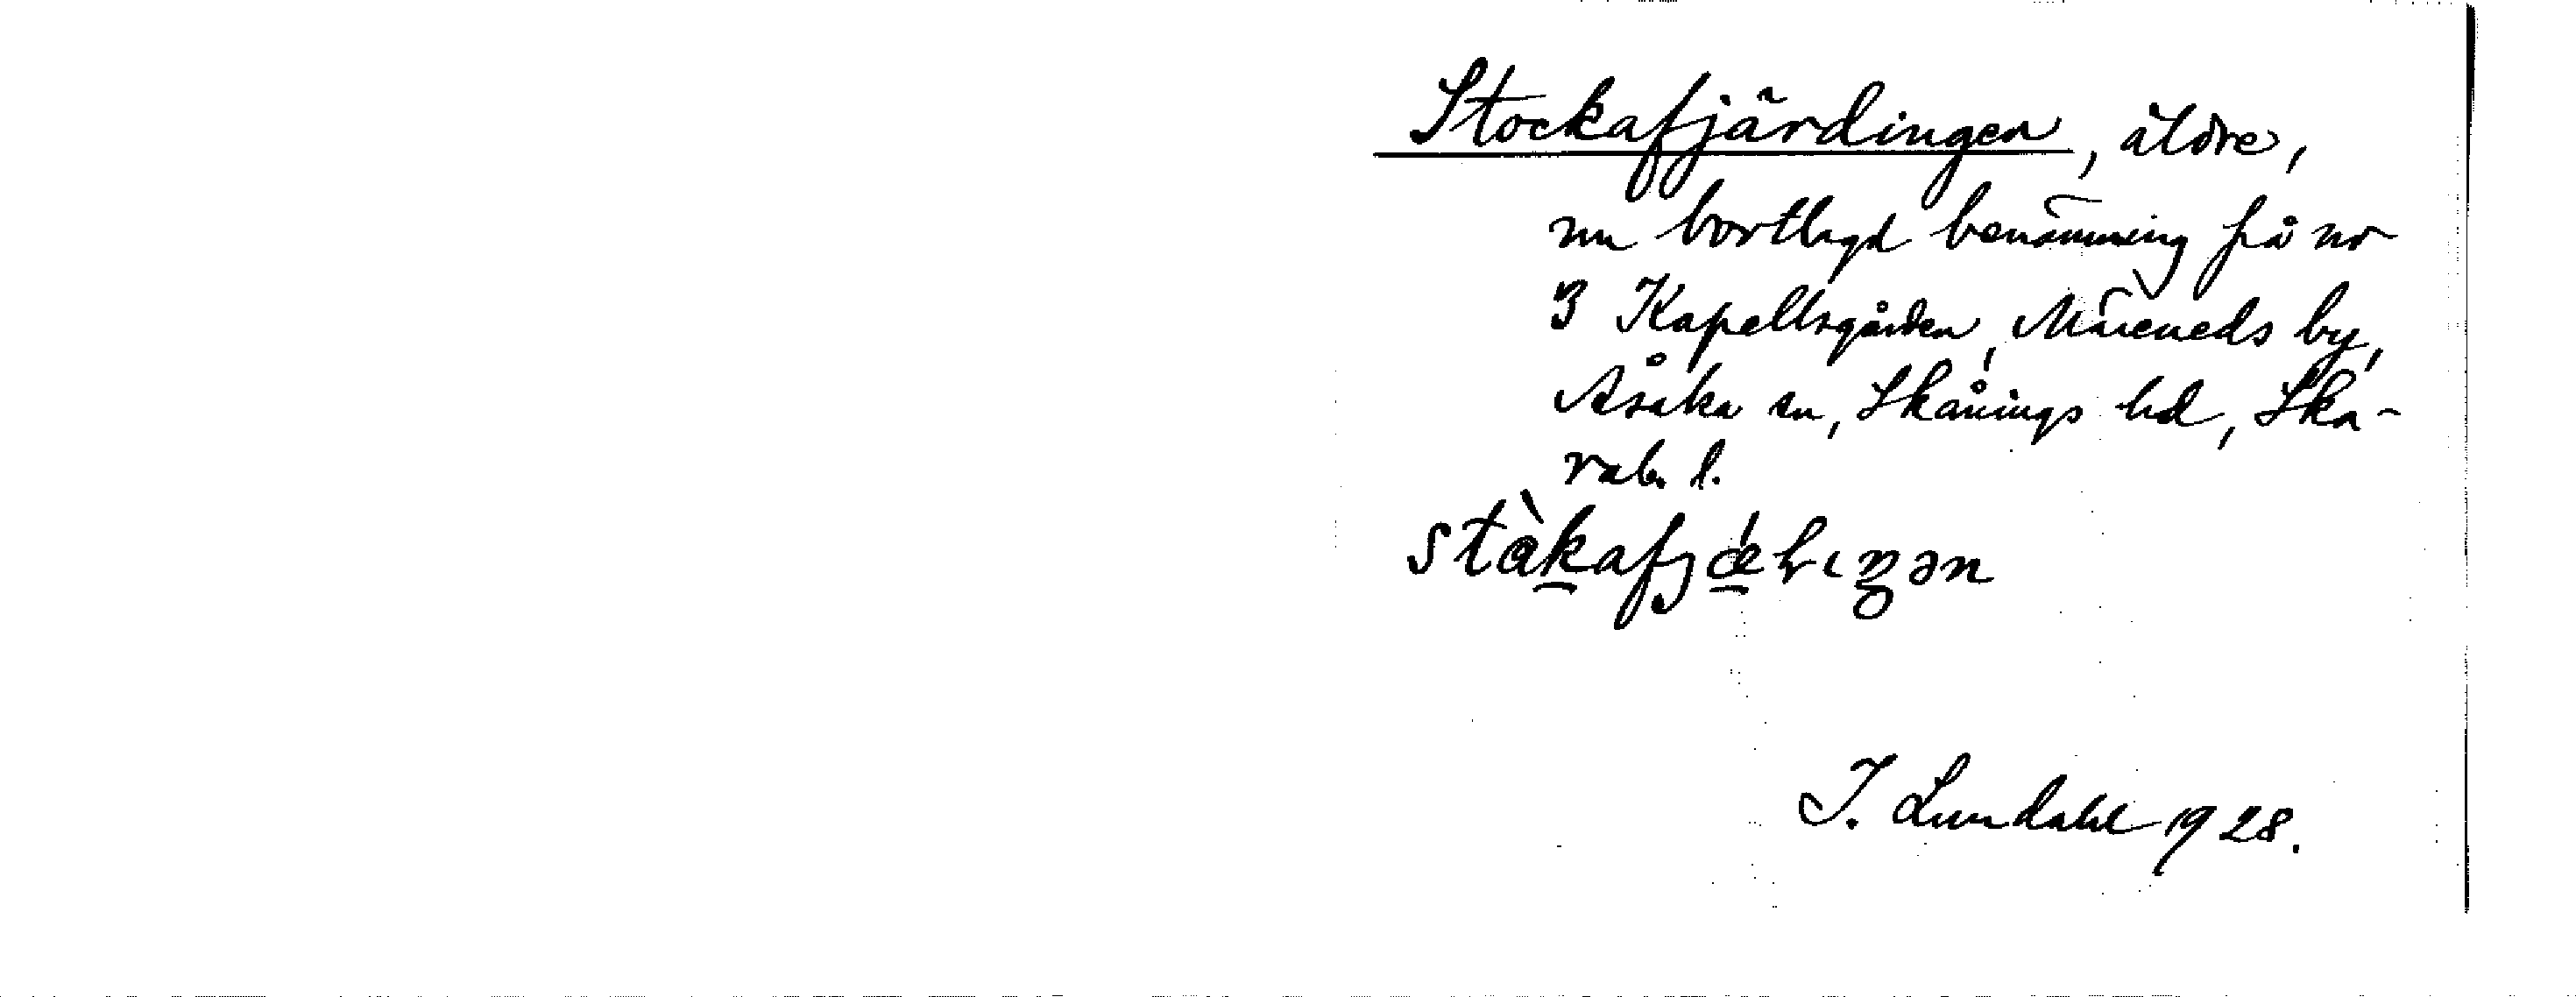 Stockafjärdingen, äldre,
nu bortlagd benämning på nr
3 Kapellsgården, Märeneds by,
Åsaka sn, Skånings hd, Ska-
rab. l.
I. Lundahl 1928.